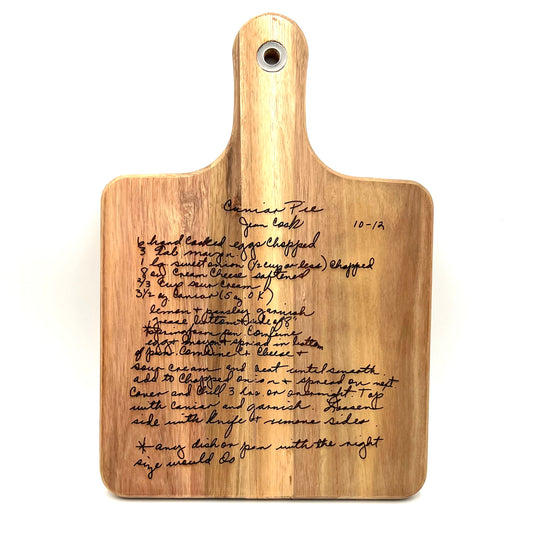 Caviar Pie
Jean Cook 10-12
6 hard cooked eggs chopped
3 Tab mayon
1 lg sweet onion (1/2 cup or less) chopped
8 oz cream cheese softened
2/3 cup sour cream
3 1/2 oz caviar (5 oz. OK)
lemon & parsley garnish
grease bottom & side of 8"
springform pan combine
egg & mayon & spread in bottom
of pan. Combine Cr cheese &
sour cream and beat until smooth.
add to chopped onion & spread on next
Cover and chill 3 hrs or overnight. Top
with caviar and garnish. Loosen
side with knife & remove sides
* any dish or pan with the right
size would do